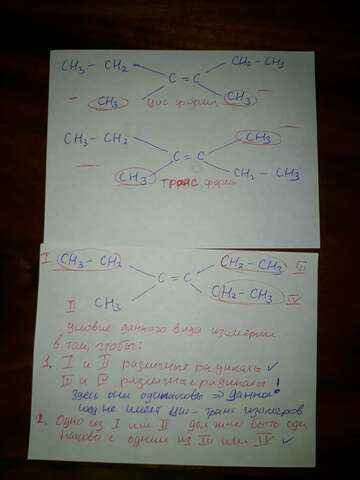 CH₃ - CH₂ CH₂-CH₃
C = C
CH₃ цис форма CH₃
CH₃ - CH₂ CH₃
C = C
CH₃ транс форма CH₂ - CH₃
I CH₃ - CH₂ CH₂ - CH₃ III
C = C
II CH₃ CH₂ - CH₃ IV
Условие данного вида изомерии
в том, чтобы:
1. I и II различные радикалы ✓
III и IV различные радикалы !
Здесь они одинаковы ⇒ данное
не имеет цис - транс изомеров
2. Одно из I или II должно быть оди
наково с одним из III или IV ✓